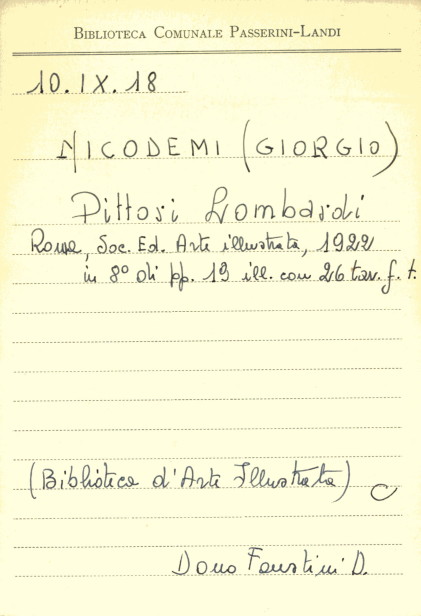 BIBLIOTECA COMUNALE PASSERINI-LANDI
10.IX.18
NICODEMI (GIORGIO)
Pittori Lombardi
Roma, Soc. Ed. Arte illustrata, 1922
in 8° di pp. 19 ill. con 26 tav. f. t.
(Biblioteca d'Arte Illustrata)
Dono Faustini D.